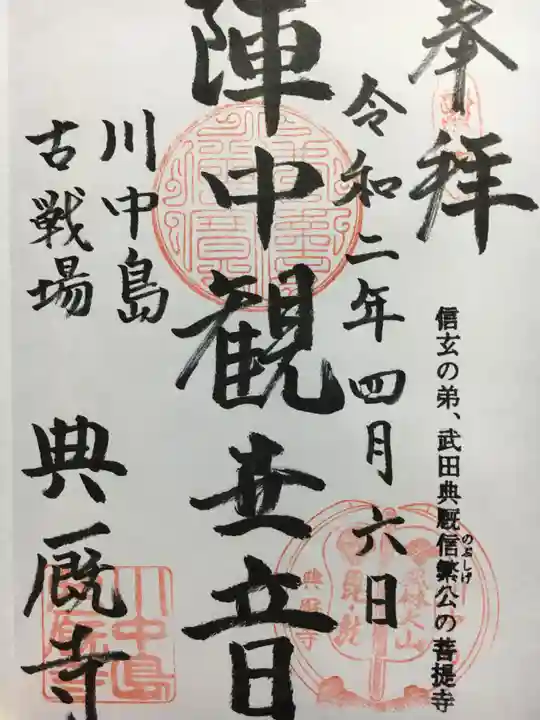 奉拝
信玄の弟、武田典厩信繁公の菩提寺
のぶしげ
令和二年四月六日
陣中観世音
川中島
古戦場
典厩寺
川中島
典厩寺
風林火山
典厩寺